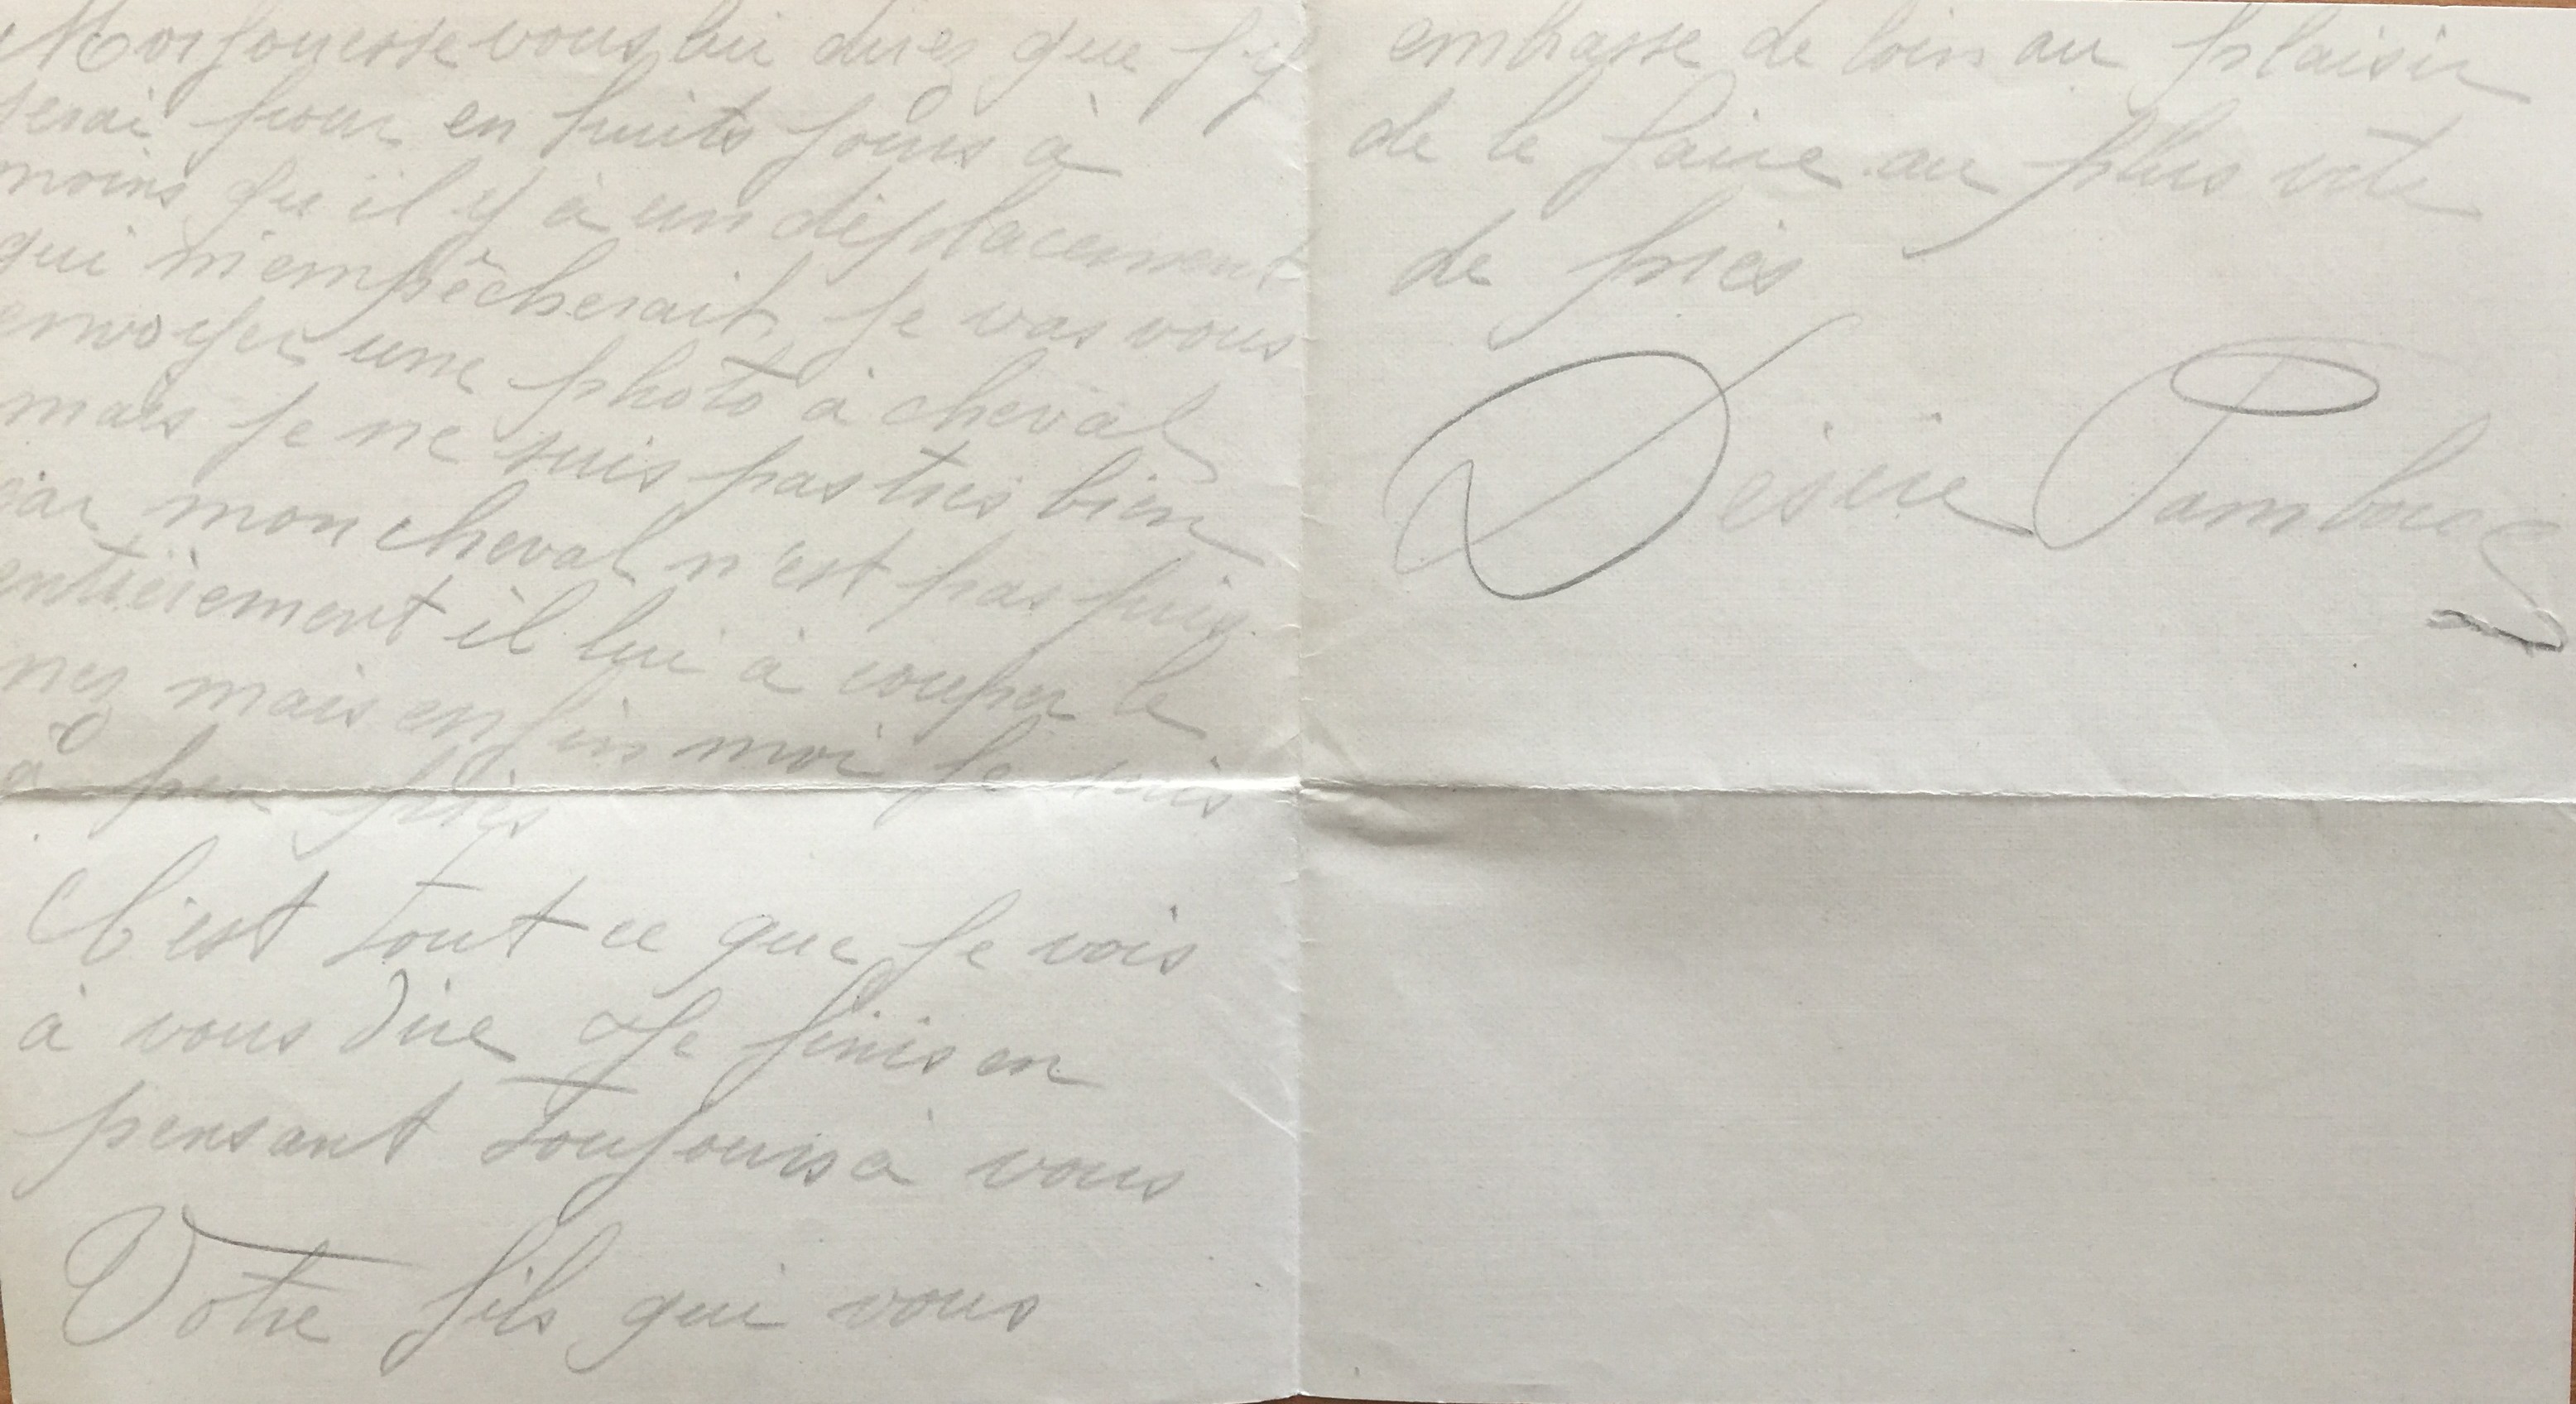 vous lui direz que j'y
serai pour en huits jours à
moins qu'il y à un déplacement
qui m'empêcherait je vas vous
envoyer une photo à cheval
mais je ne suis pas très bien
car mon cheval n'est pas pris
entièrement il lui à couper le
nez mais enfin moi je suis
à peu près
C'est tout ce que je vois
à vous dire Je finis en
pensant toujours à vous
Votre fils qui vous
embrasse de loin au plaisir
de le faire au plus vite
de près
Désiré